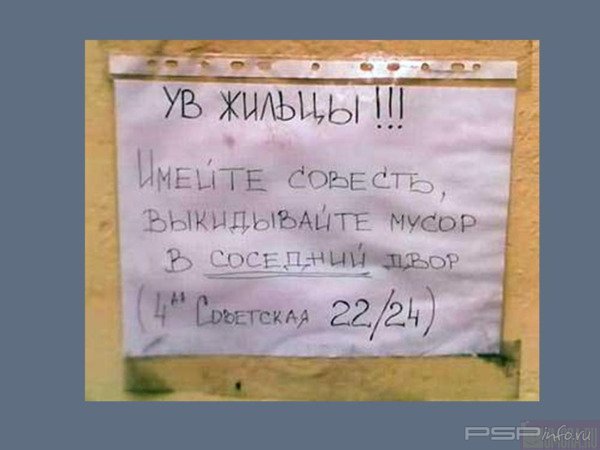 УВ ЖИЛЬЦЫ!!!
ИМЕЙТЕ СОВЕСТЬ,
ВЫКИДЫВАЙТЕ МУСОР
В СОСЕДНИЙ ДВОР
(4ая СОВЕТСКАЯ 22/24)
PSPinfo.ru